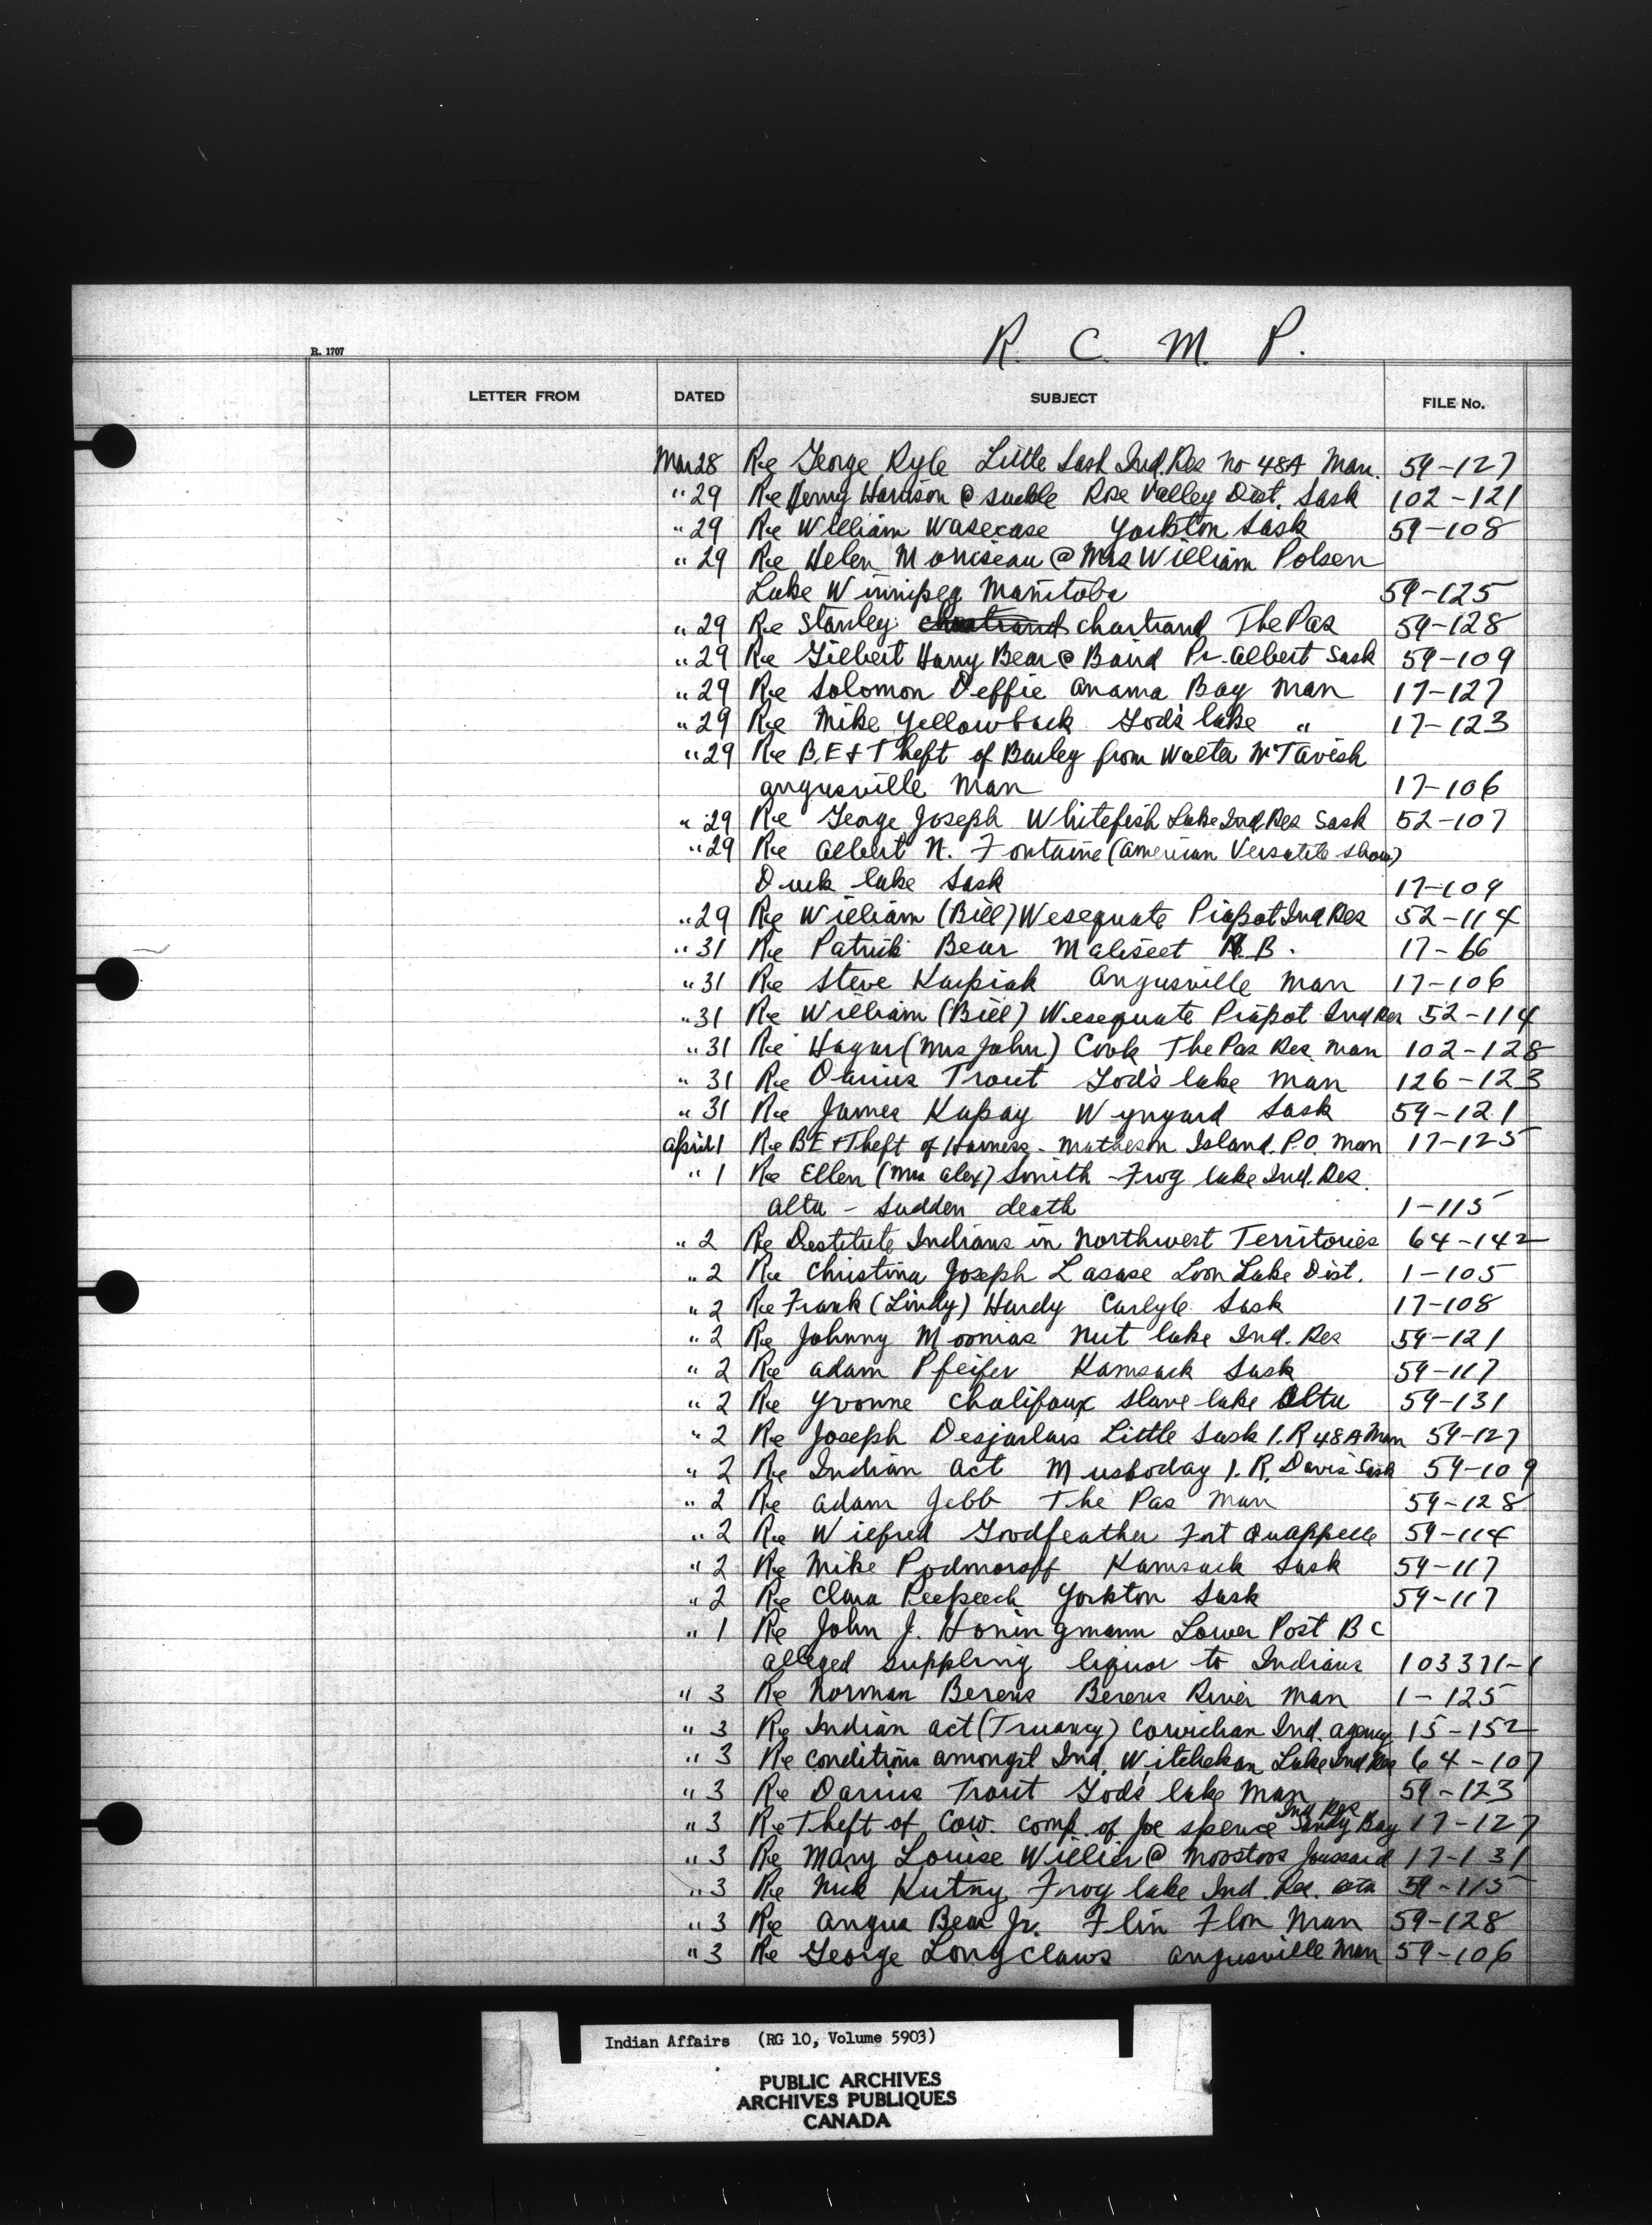 R. C. M. P.
R. 1707
LETTER FROM DATED SUBJECT FILE No.
Mar 28 Re George Kyle Little Sask Ind. Res No 48A Man. 59-127
" 29 Re Henry Harrison @ Suckle Rose Valley Dist. Sask 102-121
" 29 Re William Wasecase Yorkton Sask 59-108
" 29 Re Helen Morriseau @ Mrs William Polsen
Lake Winnipeg Manitoba 59-125
" 29 Re Stanley chartrand The Pas 59-128
" 29 Re Gilbert Harry Bear @ Baird Pr. Albert Sask 59-109
" 29 Re Solomon Deffie Anama Bay Man 17-127
" 29 Re Mike Yellowback God's lake " 17-123
" 29 Re B.E + Theft of Barley from Walter McTavish
Angusville Man 17-106
" 29 Re George Joseph Whitefish Lake Ind Res Sask 52-107
" 29 Re Albert N. Fontaine (American Versatile show)
Duck lake Sask 17-109
" 29 Re William (Bill) Wesequate Piapot Ind Res 52-114
" 31 Re Patrick Bear Maliseet N.B. 17-66
" 31 Re Steve Karpiak Angusville Man 17-106
" 31 Re William (Bill) Wesequate Piapot Ind Res 52-114
" 31 Re Hagar (Mrs John) Cook The Pas Res. Man 102-128
" 31 Re Darius Trout God's lake Man 126-123
" 31 Re James Kapay Wynyard Sask 59-121
April 1 Re B E + Theft of Harness - Matheson Island. P.O. Man 17-125
" 1 Re Ellen (Mrs Alex) Smith - Frog lake Ind. Res.
Alta - Sudden death 1-115
" 2 Re Destitute Indians in Northwest Territories 64-142
" 2 Re Christina Joseph Lasase Loon Lake Dist. 1-105
" 2 Re Frank (Lindy) Hardy Carlyle Sask 17-108
" 2 Re Johnny Moonias Nut lake Ind. Res 59-121
" 2 Re Adam Pfeifer Kamsack Sask 59-117
" 2 Re Yvonne Chalifoux Slave lake Alta 59-131
" 2 Re Joseph Desjarlais Little Sask I.R 48A Man 59-127
" 2 Re Indian Act Muskoday I.R. Davis Sask 59-109
" 2 Re Adam Jebb The Pas Man 59-128
" 2 Re Wilfred Goodfeather Fort Quappelle 59-114
" 2 Re Mike Podmoroff Kamsack Sask 59-117
" 2 Re Clara Peepeech Yorkton Sask 59-117
" 1 Re John J. Honingmann Lower Post B C
alleged suppling liquor to Indians 103371-1
" 3 Re Norman Berens Berens River Man 1-125
" 3 Re Indian Act (Truancy) Cowichan Ind. Agency 15-152
" 3 Re Conditions amongst Ind. Witchekan Lake Ind Res 64-107
" 3 Re Darius Trout God's lake Man 59-123
Ind Res
" 3 Re Theft of Cow. comp. of Joe Spence Sandy Bay 17-127
" 3 Re Mary Louise Willier @ Moostoos Joussard 17-131
" 3 Re Nick Kutny Frog lake Ind. Res. Alta 59-115
" 3 Re Angus Bear Jr. Flin Flon Man 59-128
" 3 Re George Longclaws Angusville Man 59-106
Indian Affairs (RG 10, Volume 5903)
PUBLIC ARCHIVES
ARCHIVES PUBLIQUES
CANADA